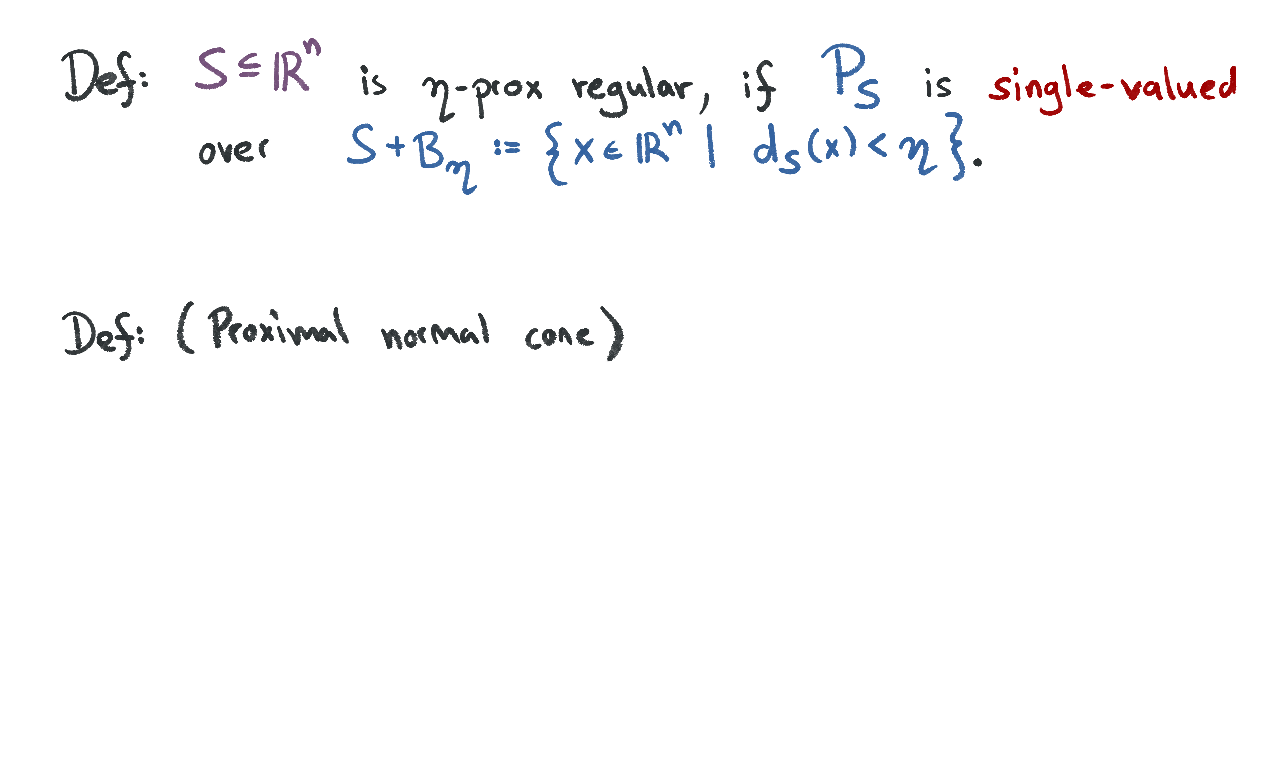 Def: S ⊆ ℝⁿ is η-prox regular, if P_S is single-valued
over S + B_η := { x ∈ ℝⁿ | d_S(x) < η }.
Def: (Proximal normal cone)